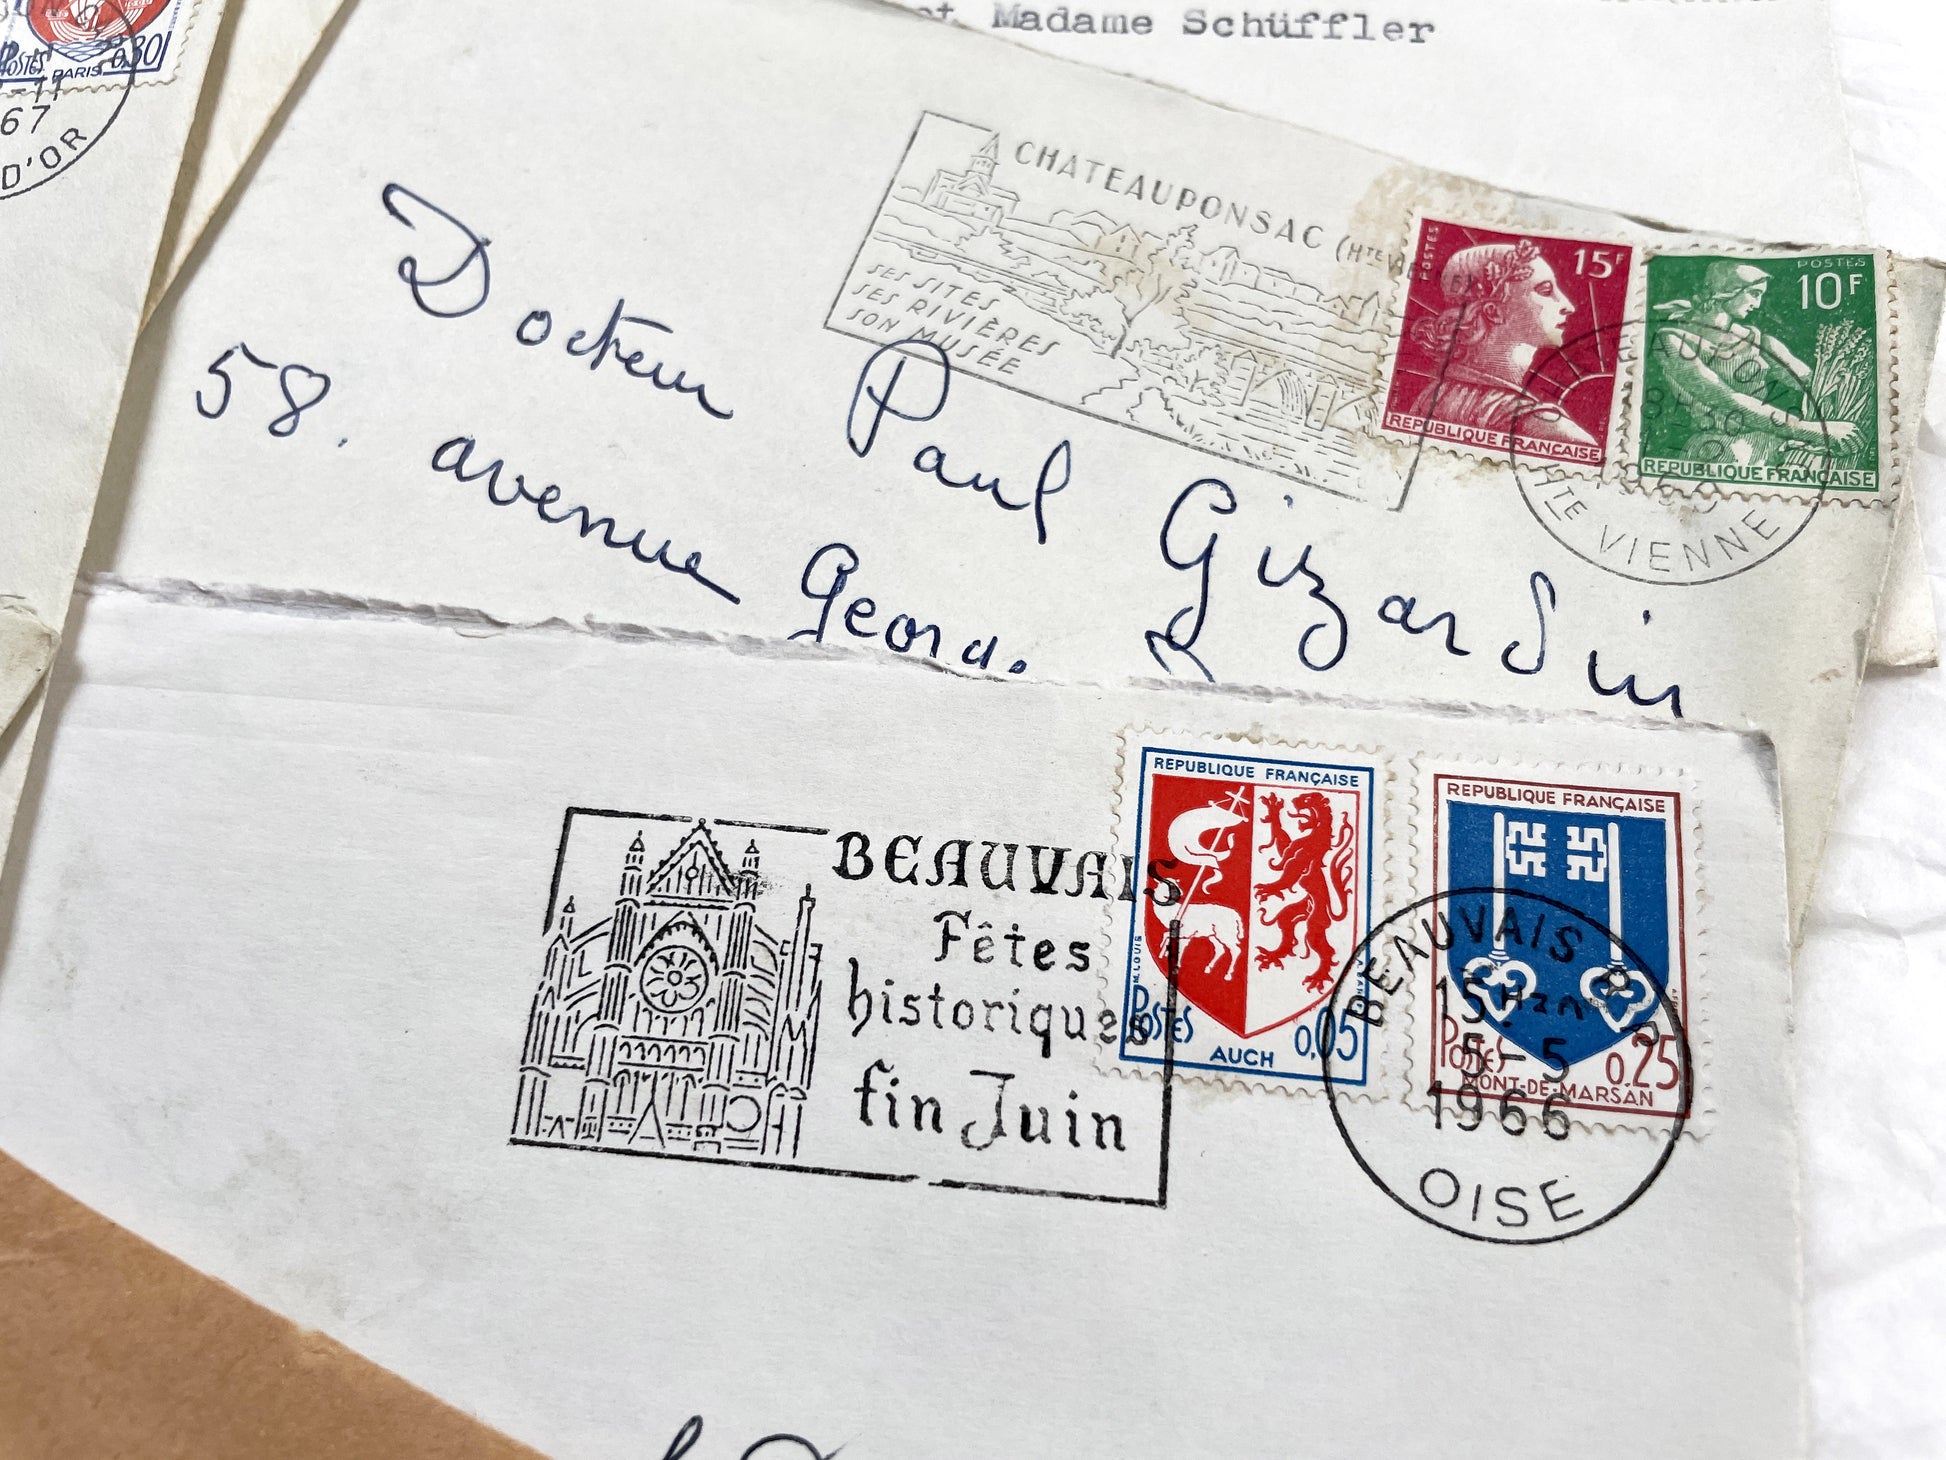 et Madame Schüffler
POSTES PARIS 0,30
67
D'OR
CHATEAUPONSAC (HTE VIENNE)
SES SITES
SES RIVIÈRES
SON MUSÉE
POSTES 15F
REPUBLIQUE FRANÇAISE
POSTES
10F
REPUBLIQUE FRANÇAISE
HTE VIENNE
Docteur Paul Gizardin
58. avenue Georg.
BEAUVAIS
Fêtes
historiques
fin Juin
REPUBLIQUE FRANÇAISE
M. LOUIS
POSTES 0,05
AUCH
REPUBLIQUE FRANÇAISE
POSTES 0,25
MONT-DE-MARSAN
BEAUVAIS R.P
15H
5-5
1966
OISE